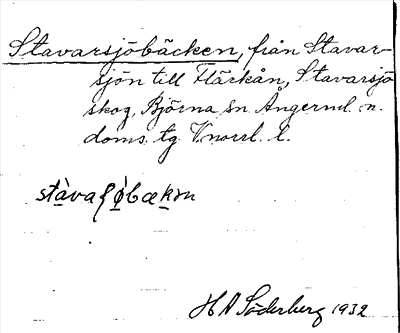 Stavarsjöbäcken, från Stavar-
sjön till Fläckån, Stavarsjö
skog, Björna sn Ångerml. n.
doms. tg V.norrl. l.
stàvaʃø̀bækən
H A Söderberg 1932